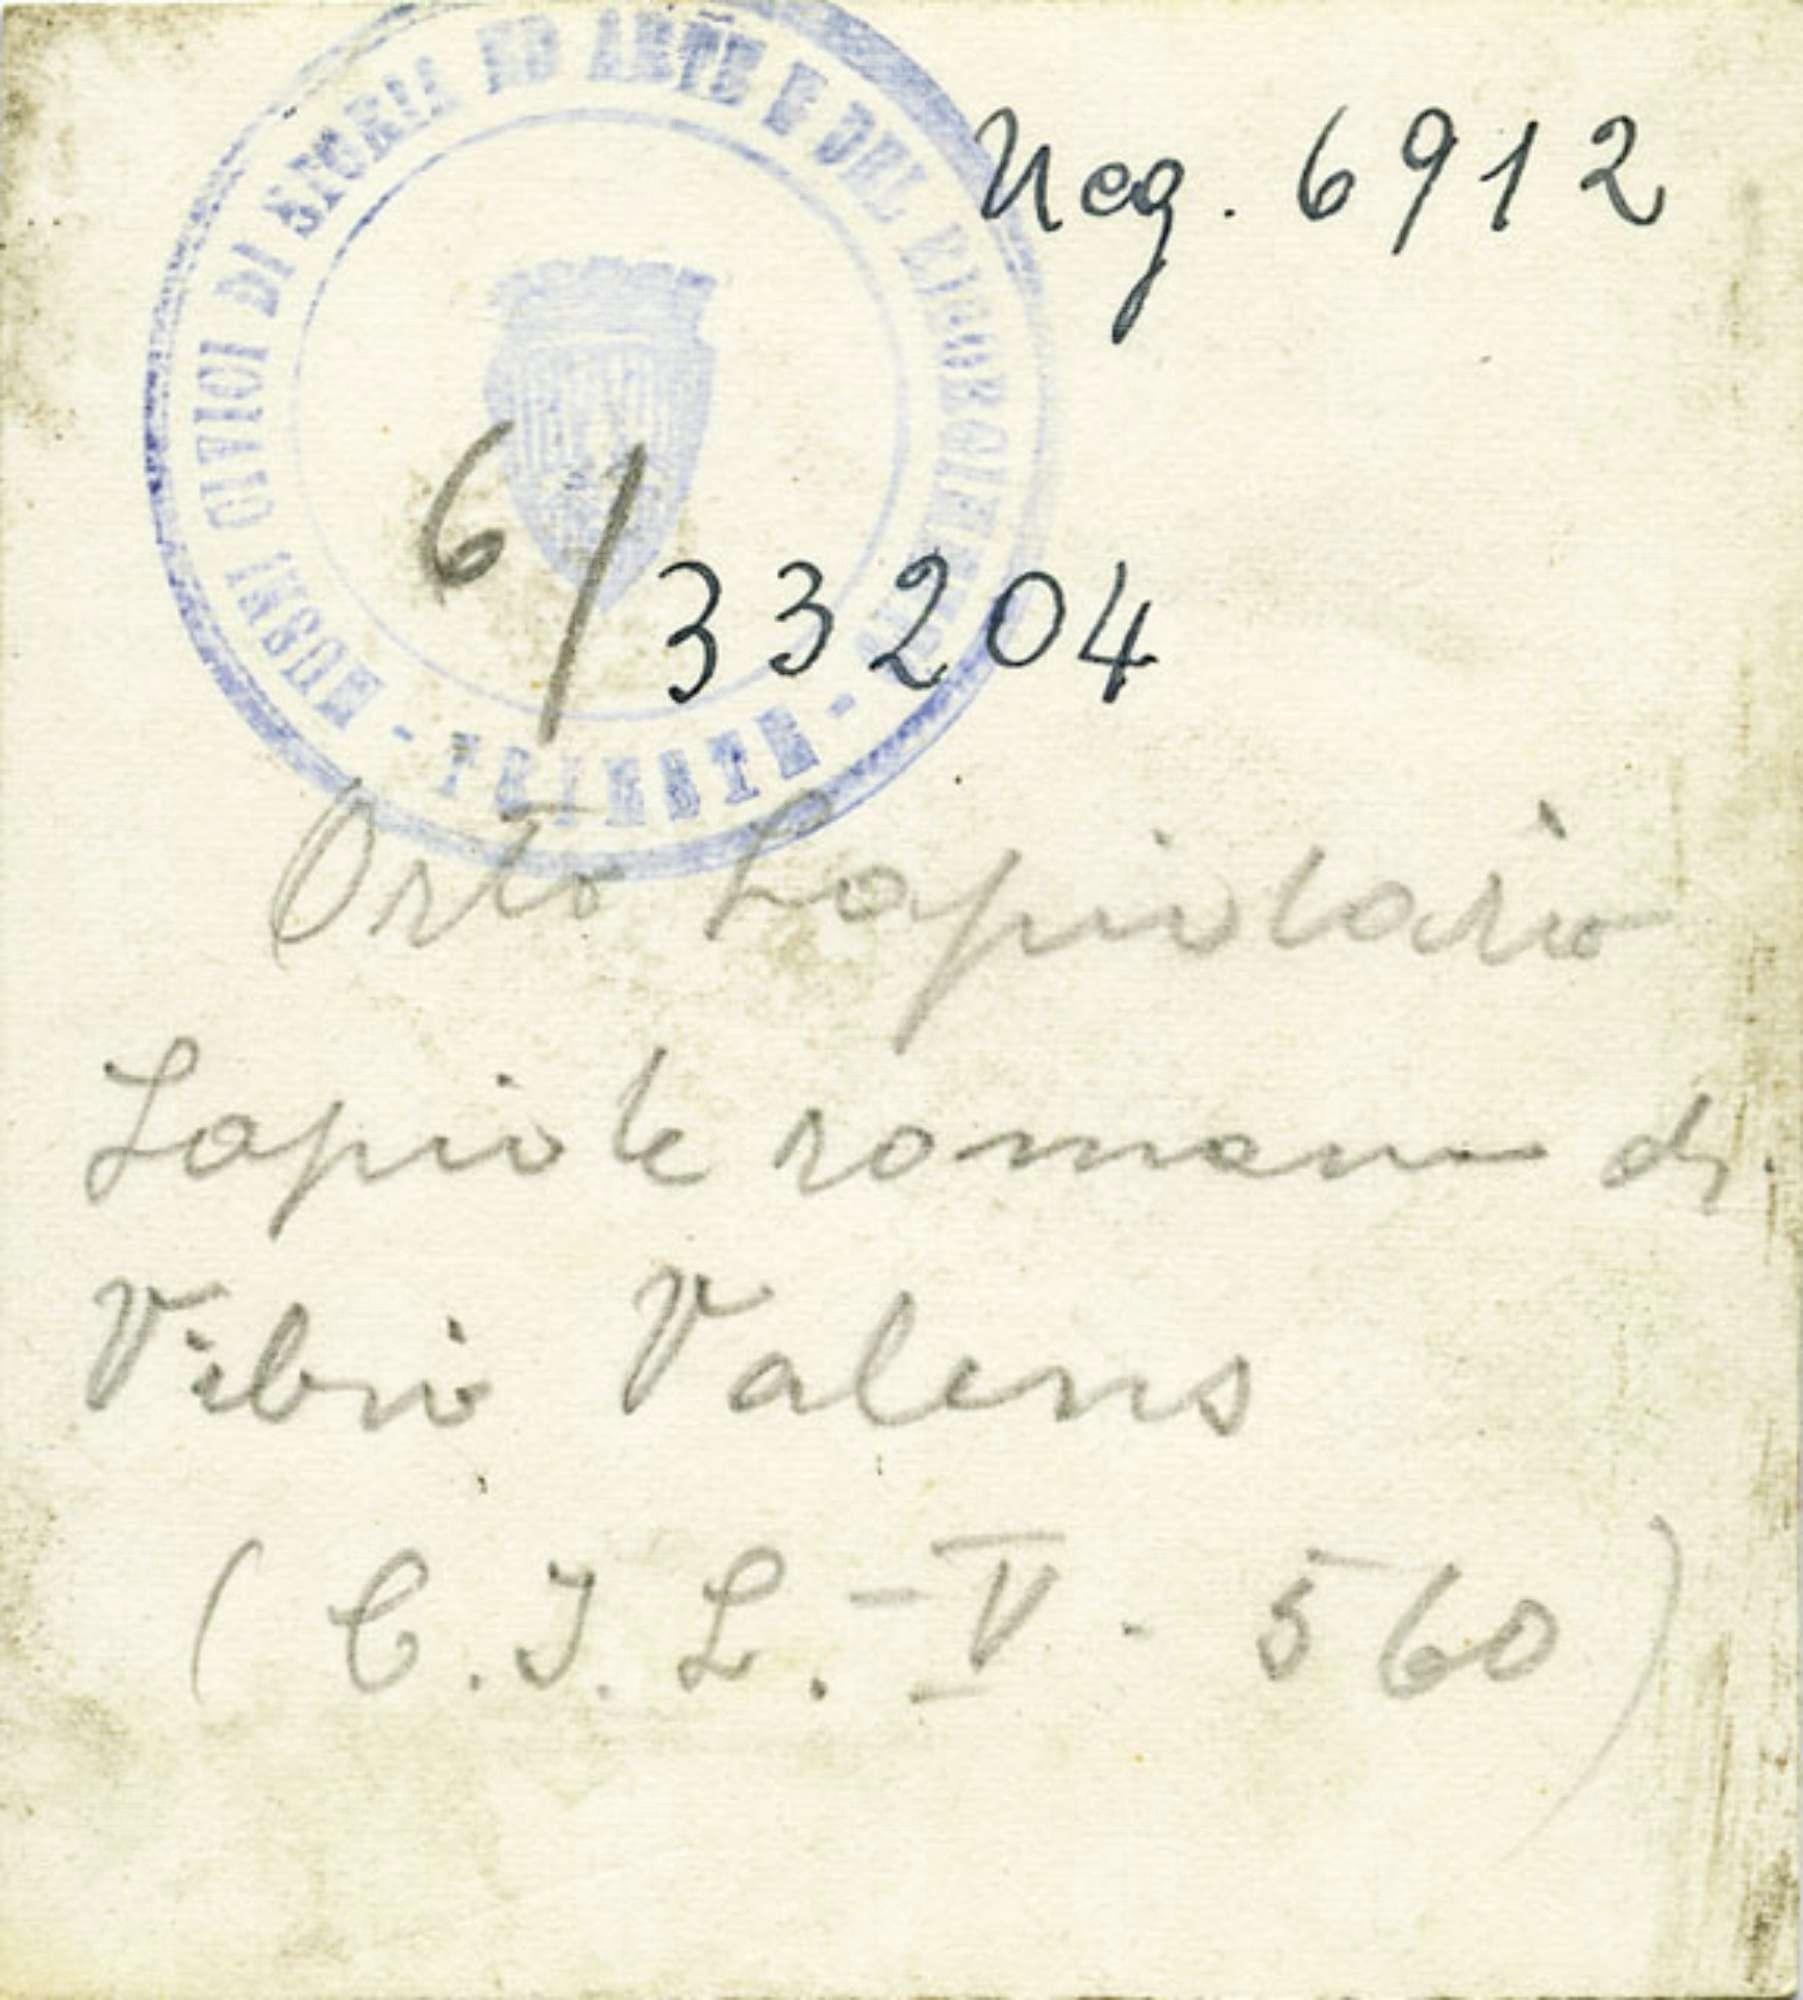 MUSEI CIVICI DI STORIA ED ARTE E DEL RISORGIMENTO
- TRIESTE -
Neg. 6912
6/33204
Orto Lapidario
Lapide romana di
Vibio Valens
(C.I.L. - V. 560)